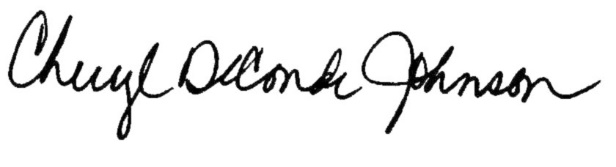 Cheryl DeConde Johnson